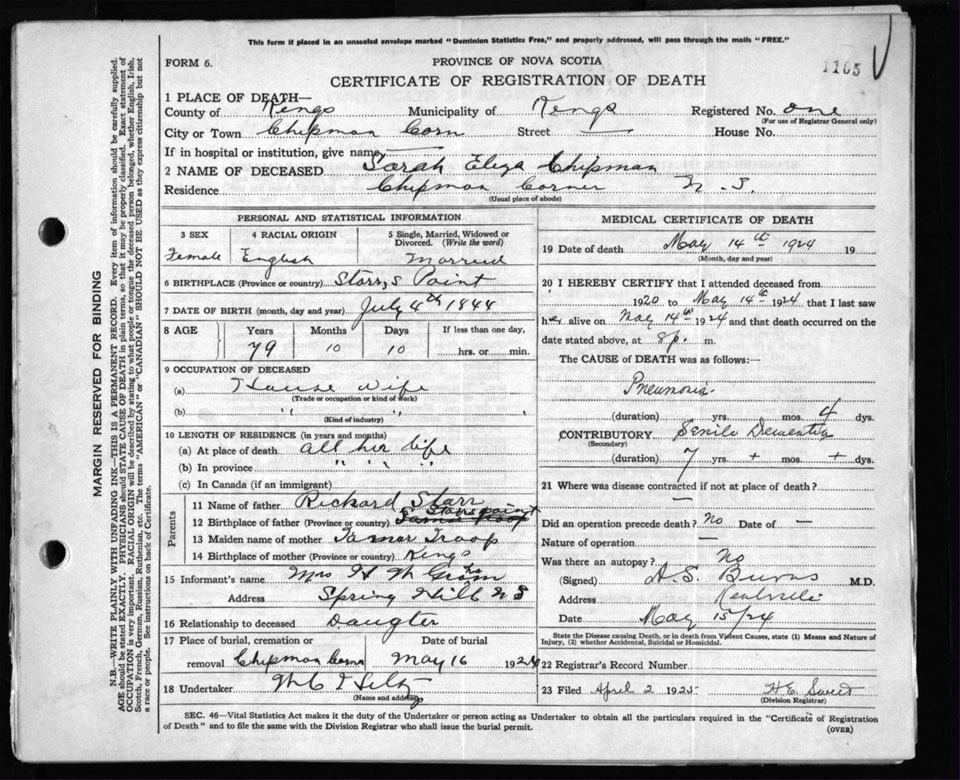 This form if placed in an unsealed envelope marked "Dominion Statistics Free," and properly addressed, will pass through the mails "FREE."
1105
FORM 6.
PROVINCE OF NOVA SCOTIA
CERTIFICATE OF REGISTRATION OF DEATH
1 PLACE OF DEATH—
County of Kings Municipality of Kings Registered No. one
(For use of Registrar General only)
City or Town Chipman Corn Street — House No.
If in hospital or institution, give name —
2 NAME OF DECEASED Sarah Eliza Chipman
Residence Chipman Corner N. S.
(Usual place of abode)
PERSONAL AND STATISTICAL INFORMATION
3 SEX 4 RACIAL ORIGIN 5 Single, Married, Widowed or Divorced. (Write the word)
Female English Married
6 BIRTHPLACE (Province or country) Starr,s Point
7 DATE OF BIRTH (month, day and year) July 4th 1844
8 AGE Years Months Days If less than one day,
79 10 10 hrs. or min.
9 OCCUPATION OF DECEASED
(a) House wife
(Trade or occupation or kind of work)
(b) " "
(Kind of industry)
10 LENGTH OF RESIDENCE (in years and months)
(a) At place of death all her life
(b) In province " " "
(c) In Canada (if an immigrant)
Parents
11 Name of father Richard Starr
12 Birthplace of father (Province or country) Starrs point
13 Maiden name of mother Tamar Troop
14 Birthplace of mother (Province or country) Kings
15 Informant's name Mrs H W
Address Spring Hill N S
16 Relationship to deceased Daugter
17 Place of burial, cremation or Date of burial
removal Chipman Corner May 16 1924
18 Undertaker
(Name and address)
MEDICAL CERTIFICATE OF DEATH
19 Date of death May 14th 1924 19
(Month, day and year)
20 I HEREBY CERTIFY that I attended deceased from
1920 to May 14th 1924 that I last saw
her alive on May 14th 1924 and that death occurred on the
date stated above, at 8 p. m.
The CAUSE of DEATH was as follows:
Pneumonia
(duration) yrs. mos. 4 dys.
CONTRIBUTORY Senile Dementia
(Secondary)
(duration) 7 yrs. + mos. + dys.
21 Where was disease contracted if not at place of death?
—
Did an operation precede death? No Date of —
Nature of operation —
Was there an autopsy? No
(Signed) A. S. Burns M.D.
Address Kentville
Date May 15/24
State the Disease causing Death, or in death from Violent Causes, state (1) Means and Nature of
Injury, (2) whether Accidental, Suicidal or Homicidal.
22 Registrar's Record Number
23 Filed April 2 1925 H E Sweet
(Division Registrar)
SEC. 46—Vital Statistics Act makes it the duty of the Undertaker or person acting as Undertaker to obtain all the particulars required in the "Certificate of Registration
of Death" and to file the same with the Division Registrar who shall issue the burial permit.
(OVER)
MARGIN RESERVED FOR BINDING
N.B.—WRITE PLAINLY WITH UNFADING INK—THIS IS A PERMANENT RECORD. Every item of information should be carefully supplied.
AGE should be stated EXACTLY. PHYSICIANS should STATE CAUSE OF DEATH in plain terms, so that it may be properly classified. Exact statement of
OCCUPATION is very important. RACIAL ORIGIN will be described by stating to what people or tongue the deceased person belonged, whether English, Irish,
Scotch, French, German, Russian, Ruthenian, etc. The terms "AMERICAN" or "CANADIAN" SHOULD NOT BE USED as they express citizenship but not
a race or people. See instructions on back of Certificate.